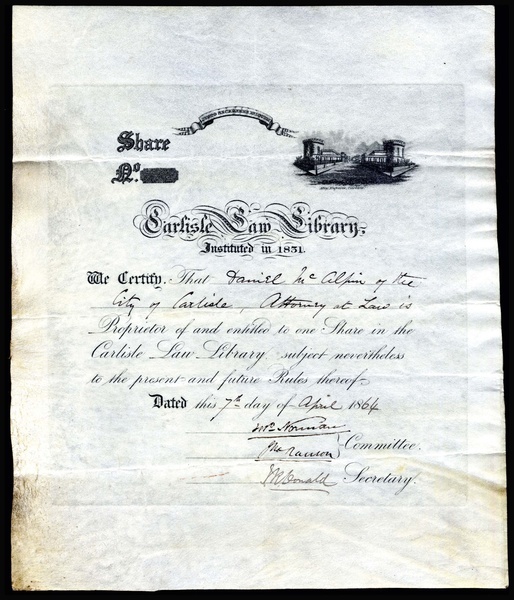 Share
No.
Carlisle Law Library,
Instituted in 1831.
We Certify, That Daniel Mc Alpin of the
City of Carlisle, Attorney at Law is
Proprietor of and entitled to one Share in the
Carlisle Law Library, subject nevertheless
to the present and future Rules thereof.
Dated this 7th day of April 1864
Norman
Committee.
Secretary.